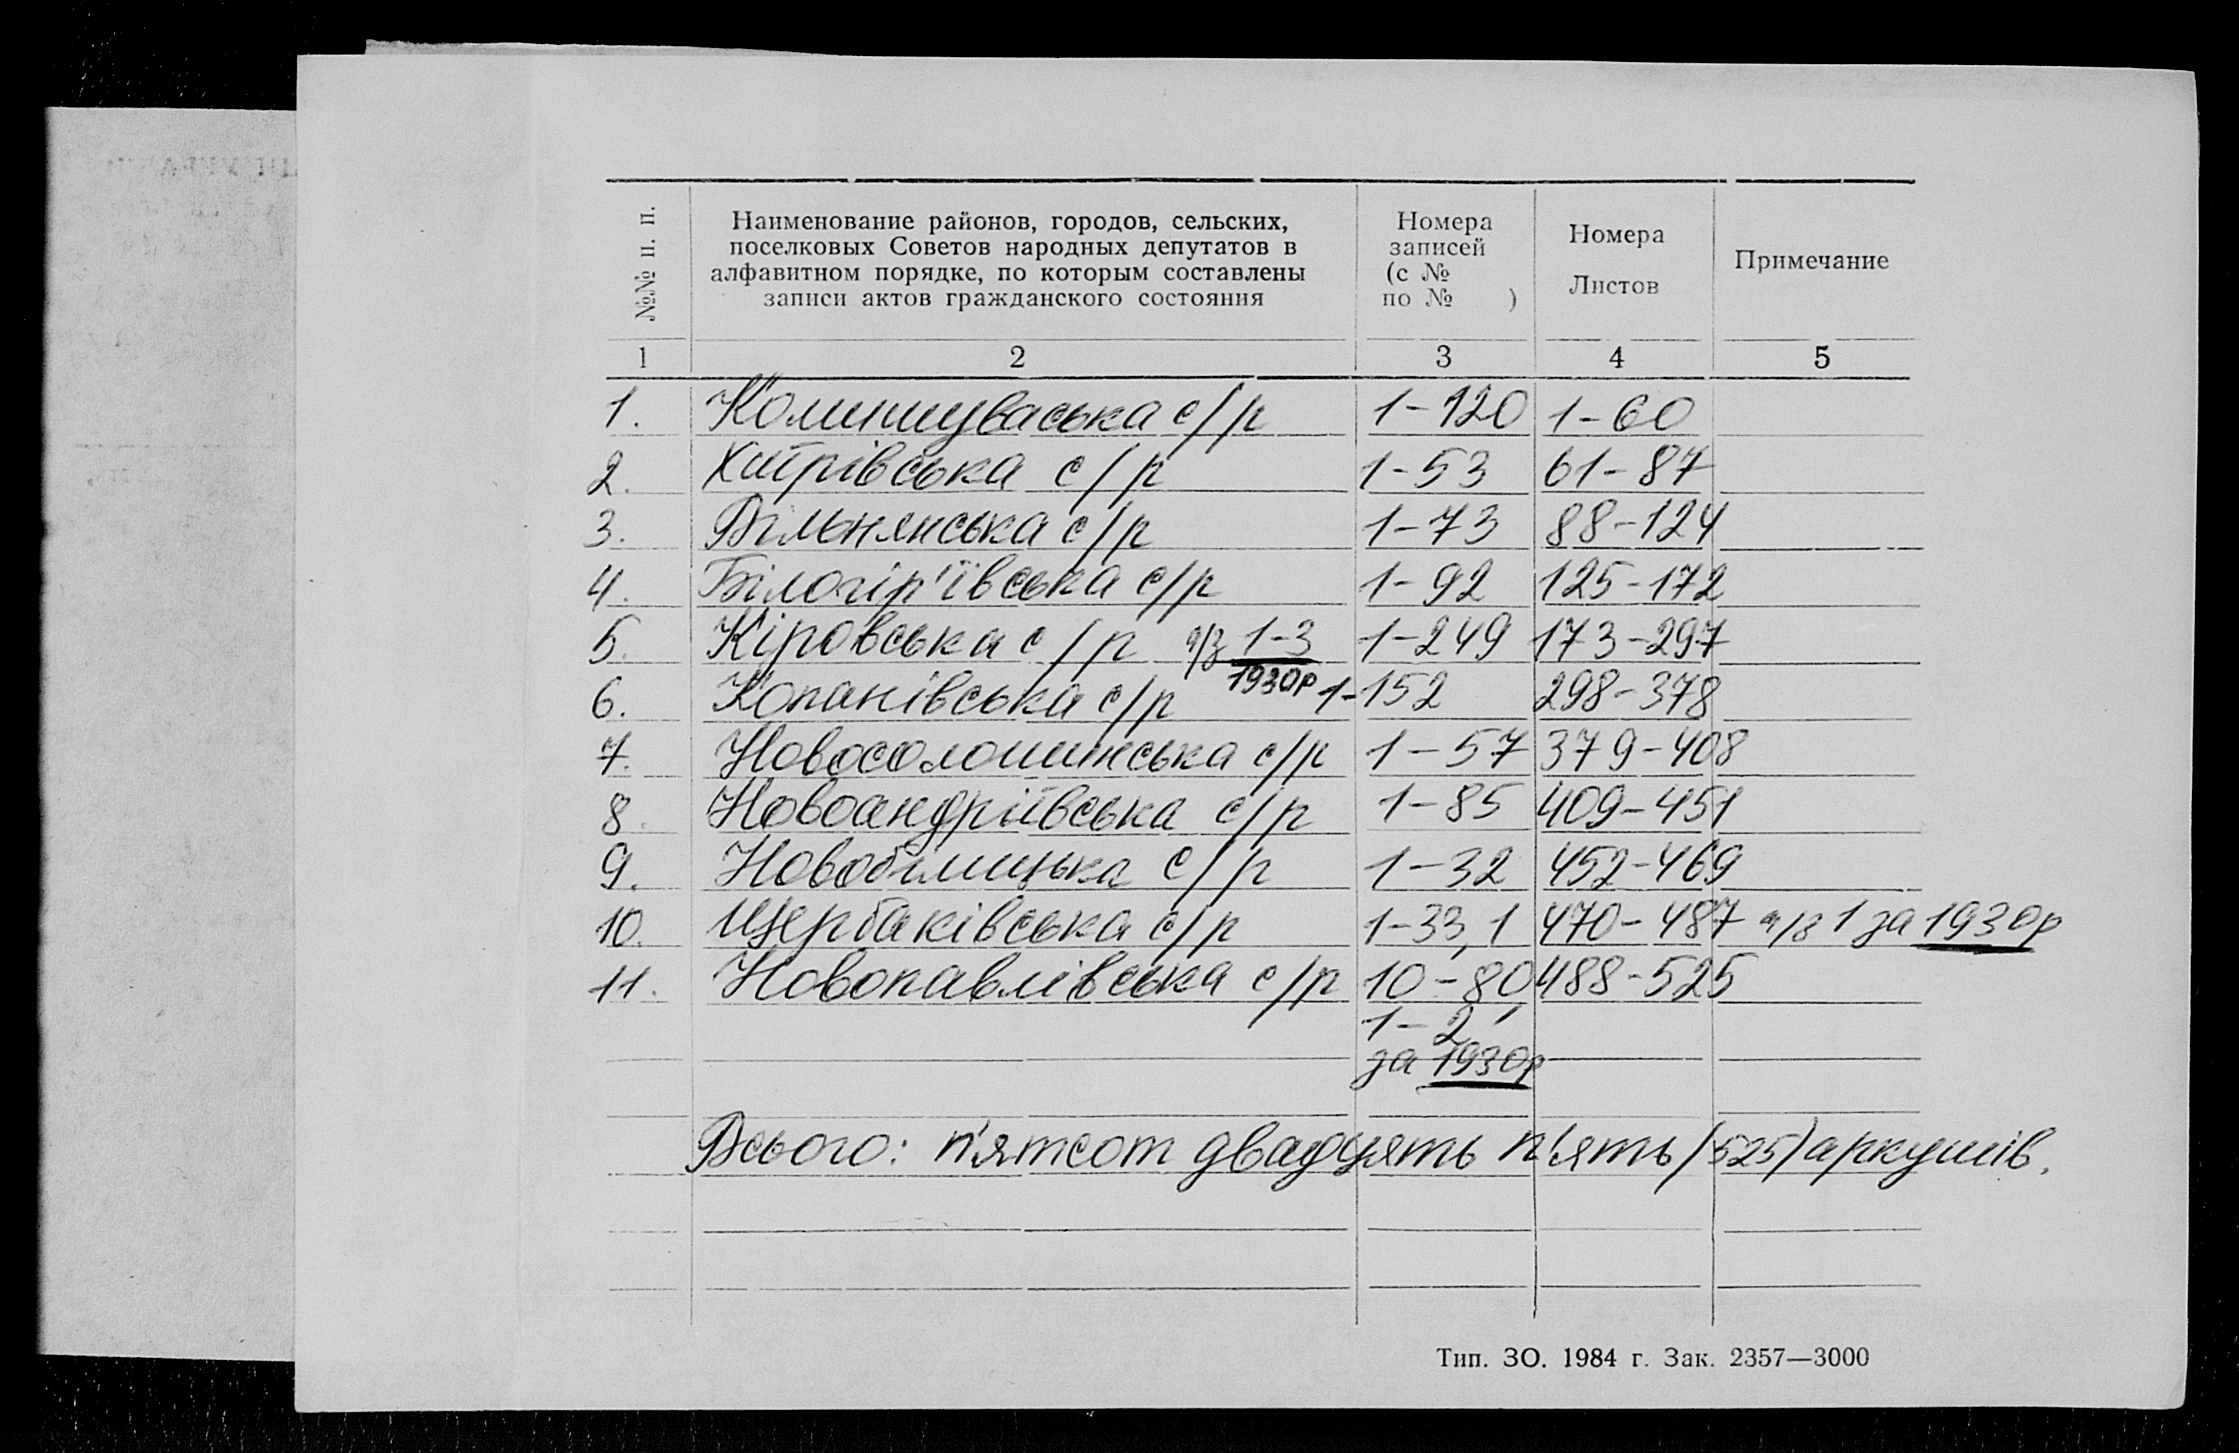 №№ п. п.
Наименование районов, городов, сельских,
поселковых Советов народных депутатов в
алфавитном порядке, по которым составлены
записи актов гражданского состояния
Номера
записей
(с №
по № )
Номера
Листов
Примечание
1 2 3 4 5
1. Комишуваська с/р 1-120 1-60
2. Хитрівська с/р 1-53 61-87
3. Вільнянська с/р 1-73 88-124
4. Білогір'ївська с/р 1-92 125-172
5. Кіровська с/р а/з 1-3 1-249 173-297
1930р
6. Копанівська с/р 1-152 298-378
7. Новосолошинська с/р 1-57 379-408
8. Новоандріївська с/р 1-85 409-451
9. Новобілицька с/р 1-32 452-469
10. Щербаківська с/р 1-33, 1 470-487 а/з 1 за 1930р
11. Новопавлівська с/р 10-80, 488-525
1-2
за 1930р
Всього: п'ятсот двадцять п'ять (525) аркушів.
Тип. ЗО. 1984 г. Зак. 2357—3000